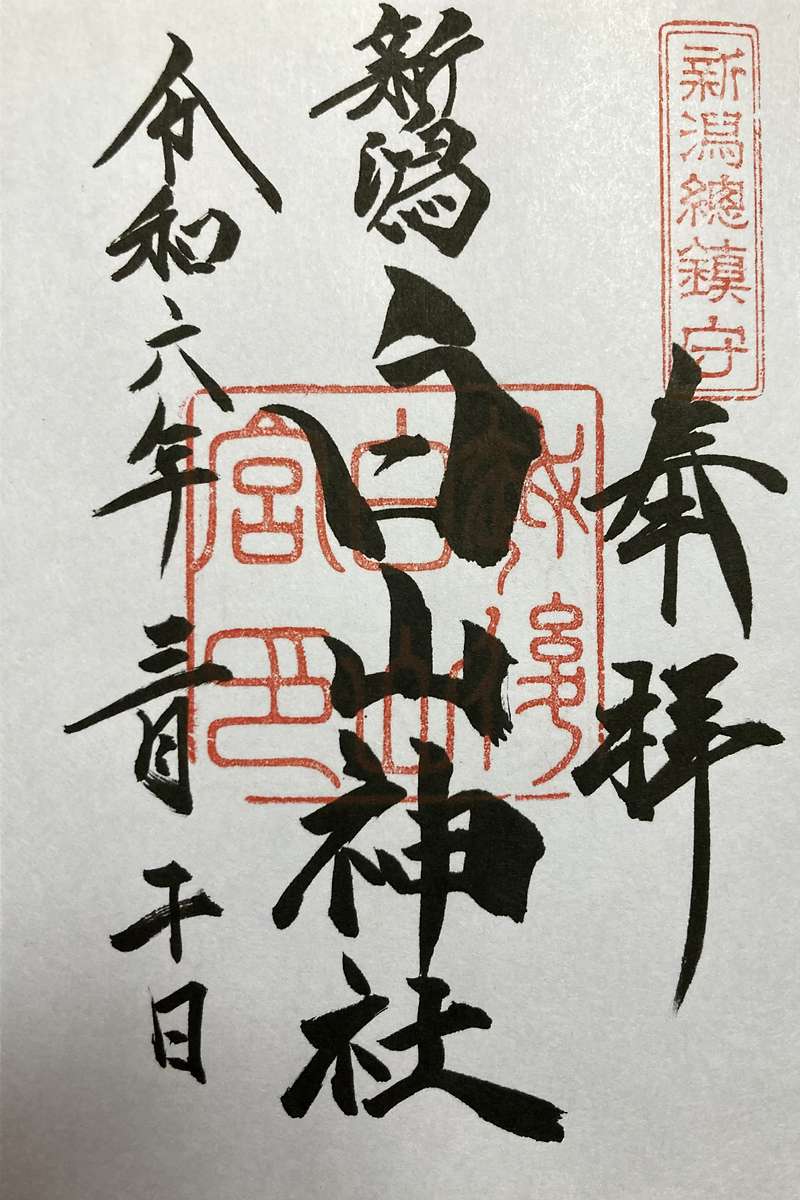 新潟總鎮守
奉拝
新潟
白山神社
越後
白山
宮印
令和六年三月二十日